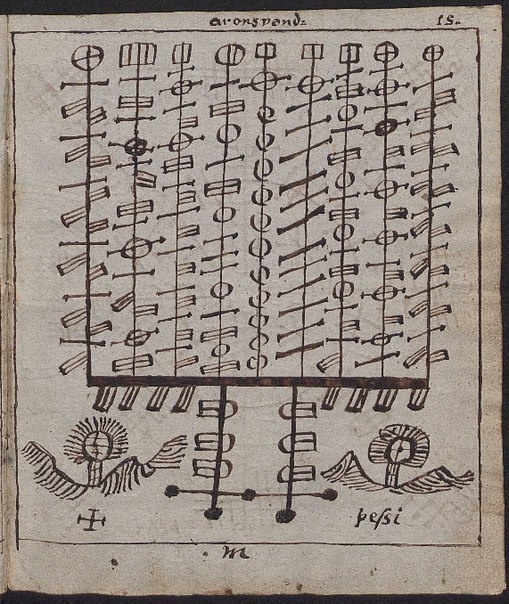 aronspond: 15.
þessi
m